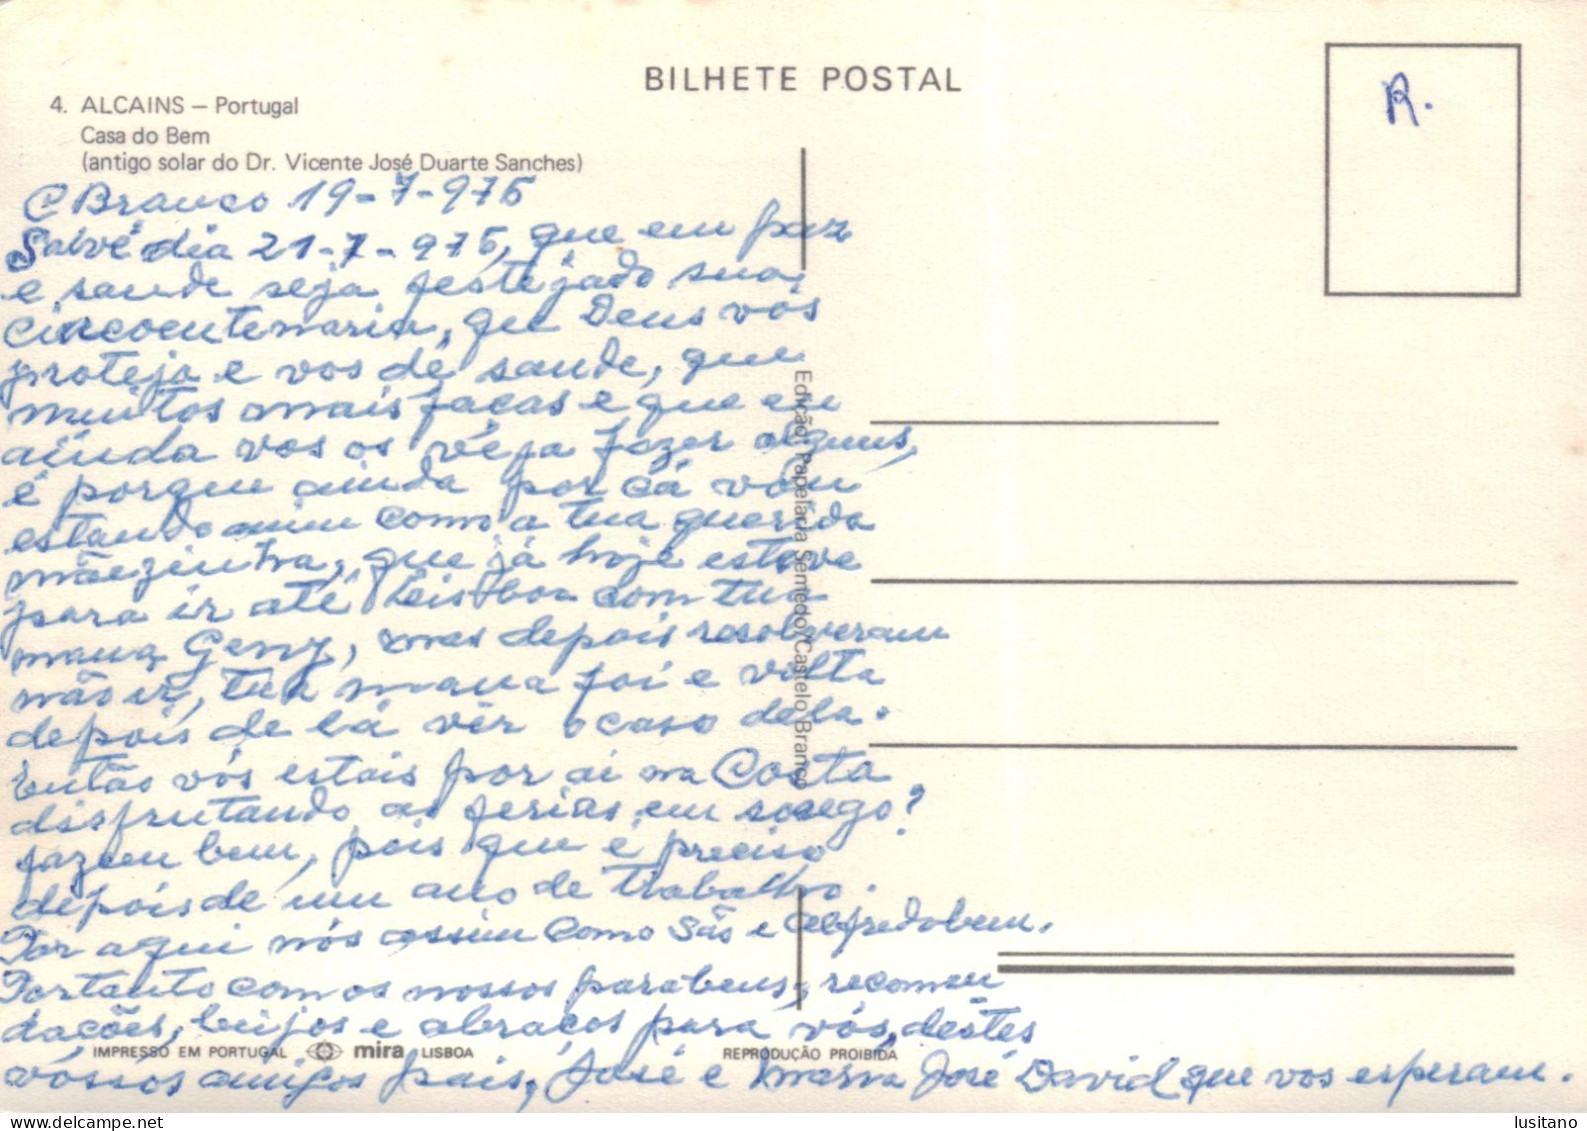 BILHETE POSTAL
R.
4. ALCAINS – Portugal
Casa do Bem
(antigo solar do Dr. Vicente José Duarte Sanches)
C Branco 19-7-975
Salvé dia 21-7-975, que em paz
e saude seja festejado sua
cincoentenaria, que Deus vos
proteja e vos dê saude, que
muitos mais faças e que eu
ainda vos os veja fazer alguns,
é porque ainda por cá vou
estando assim como a tua querida
mãezinha, que já hoje esteve
para ir até Leisboa com tua
mana Geny, mas depois resolveram
não ir, tua mana foi e volta
depois de lá vêr o caso dela.
Então vós estais por ai na Costa
disfrutando as ferias em socego?
fazem bem, pois que é preciso
depois de um ano de trabalho.
Por aqui nós assim como São e Alfredo bem.
Portanto com os nossos parabens, recomen
dações, beijos e abraços para vós, destes
vóssos amigos pais, José e Maria José David que vos esperam.
Edição: Papelaria Semedo/Castelo Branco
IMPRESSO EM PORTUGAL mira LISBOA
REPRODUÇÃO PROIBIDA
lusitano